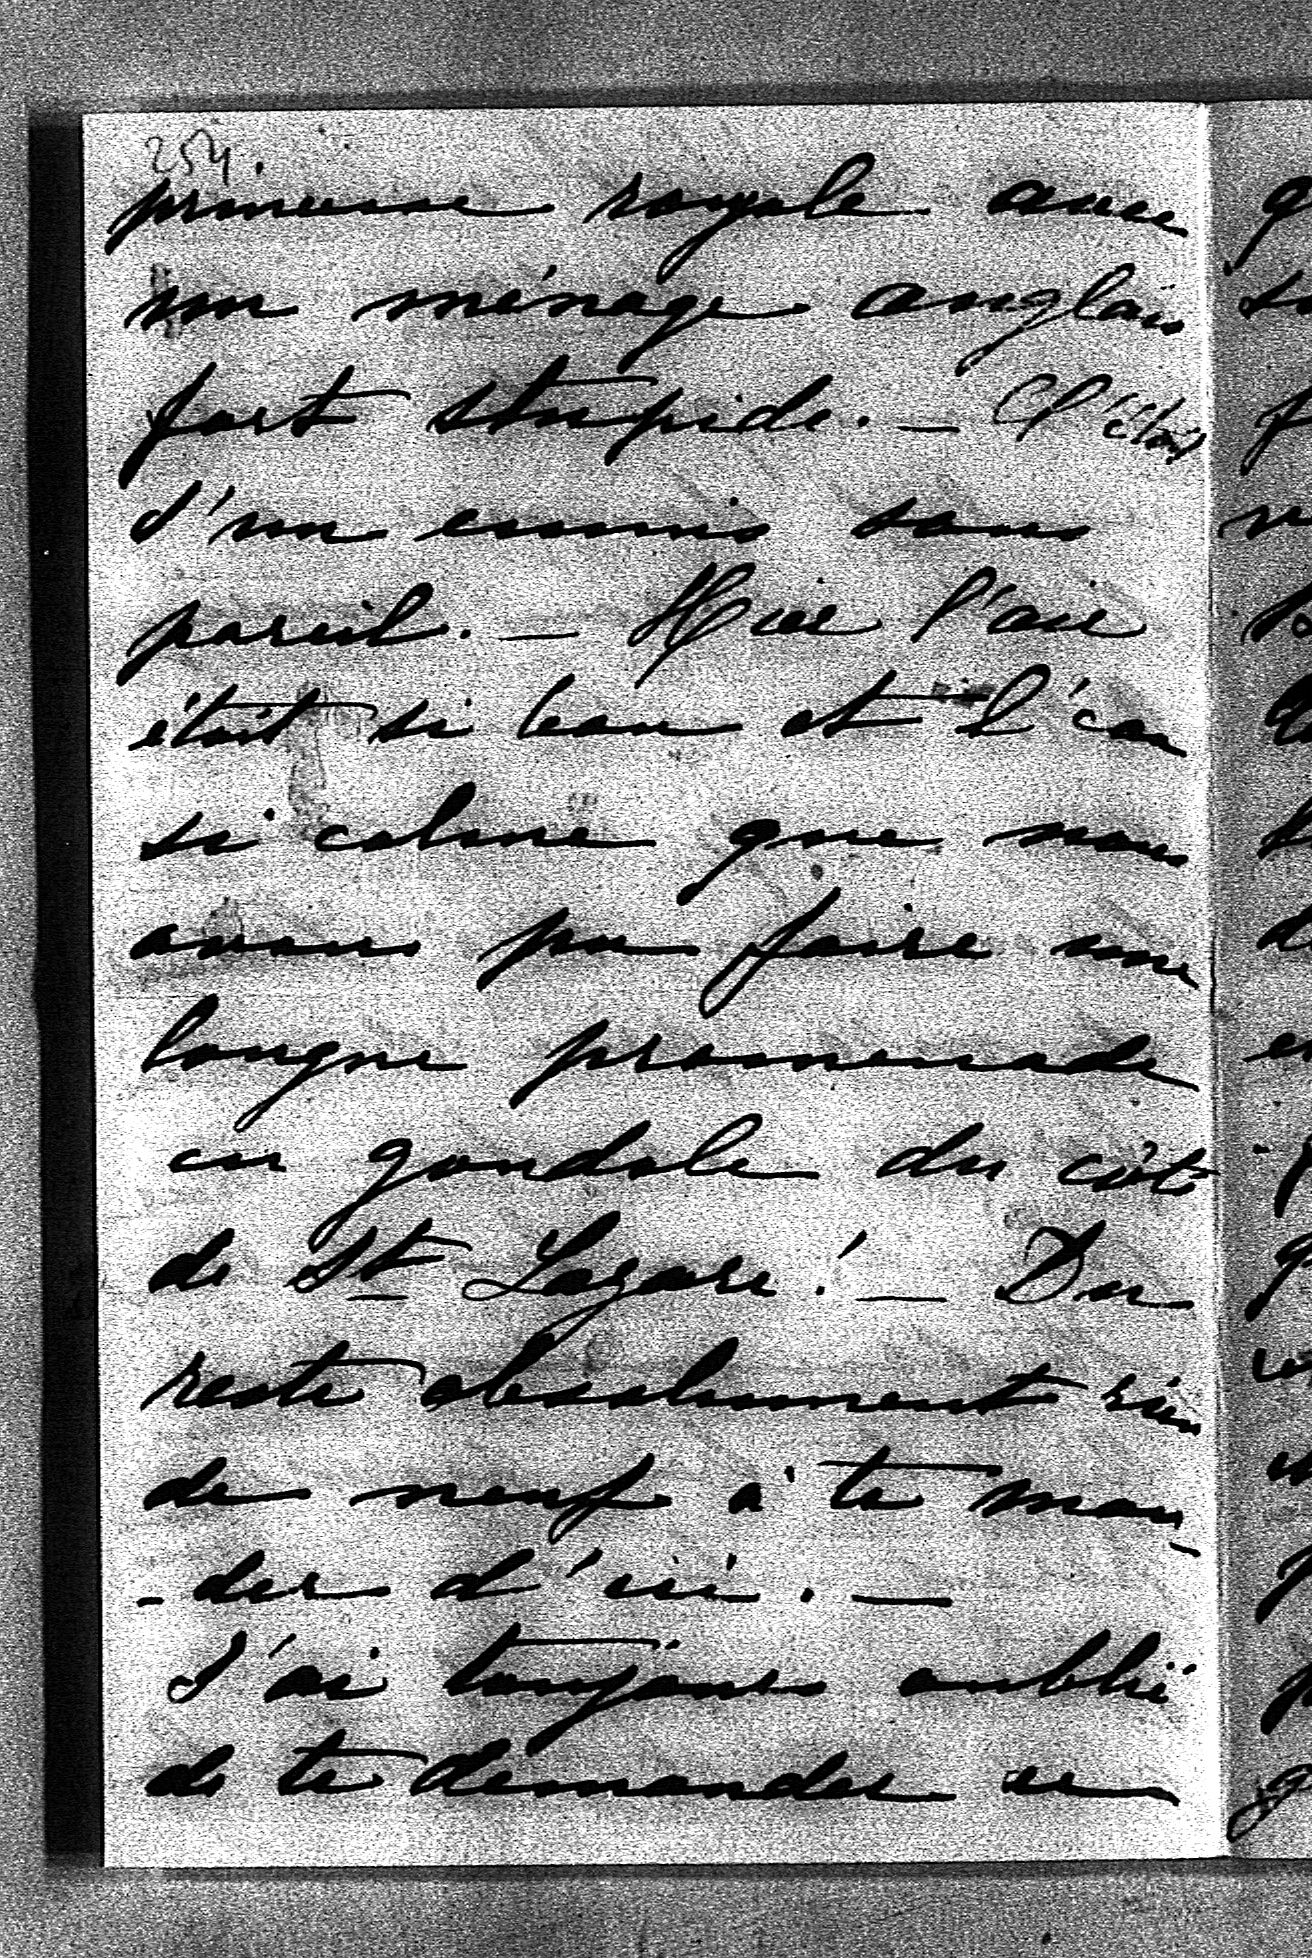 254.
princesse royale avec
un ménage anglais
fort stupide. — C'était
d'un ennui sans
pareil. — Hier l'air
était si beau et l'eau
si calme que nous
avons pu faire une
longue promenade
en gondole du côté
de St Lazare! — Du
reste absolument rien
de neuf à te man-
-der d'ici. —
J'ai toujours oublié
de te demander ce